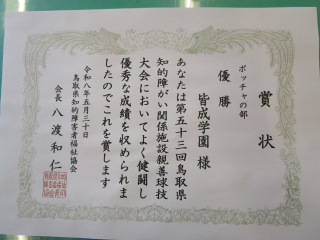 賞状
ボッチャの部
優勝
皆成学園 様
あなたは第五十三回鳥取県
知的障がい関係施設親善球技
大会においてよく健闘し
優秀な成績を収められま
したのでこれを賞します
令和八年五月三十日
鳥取県知的障害者福祉協会
会長 八渡和仁